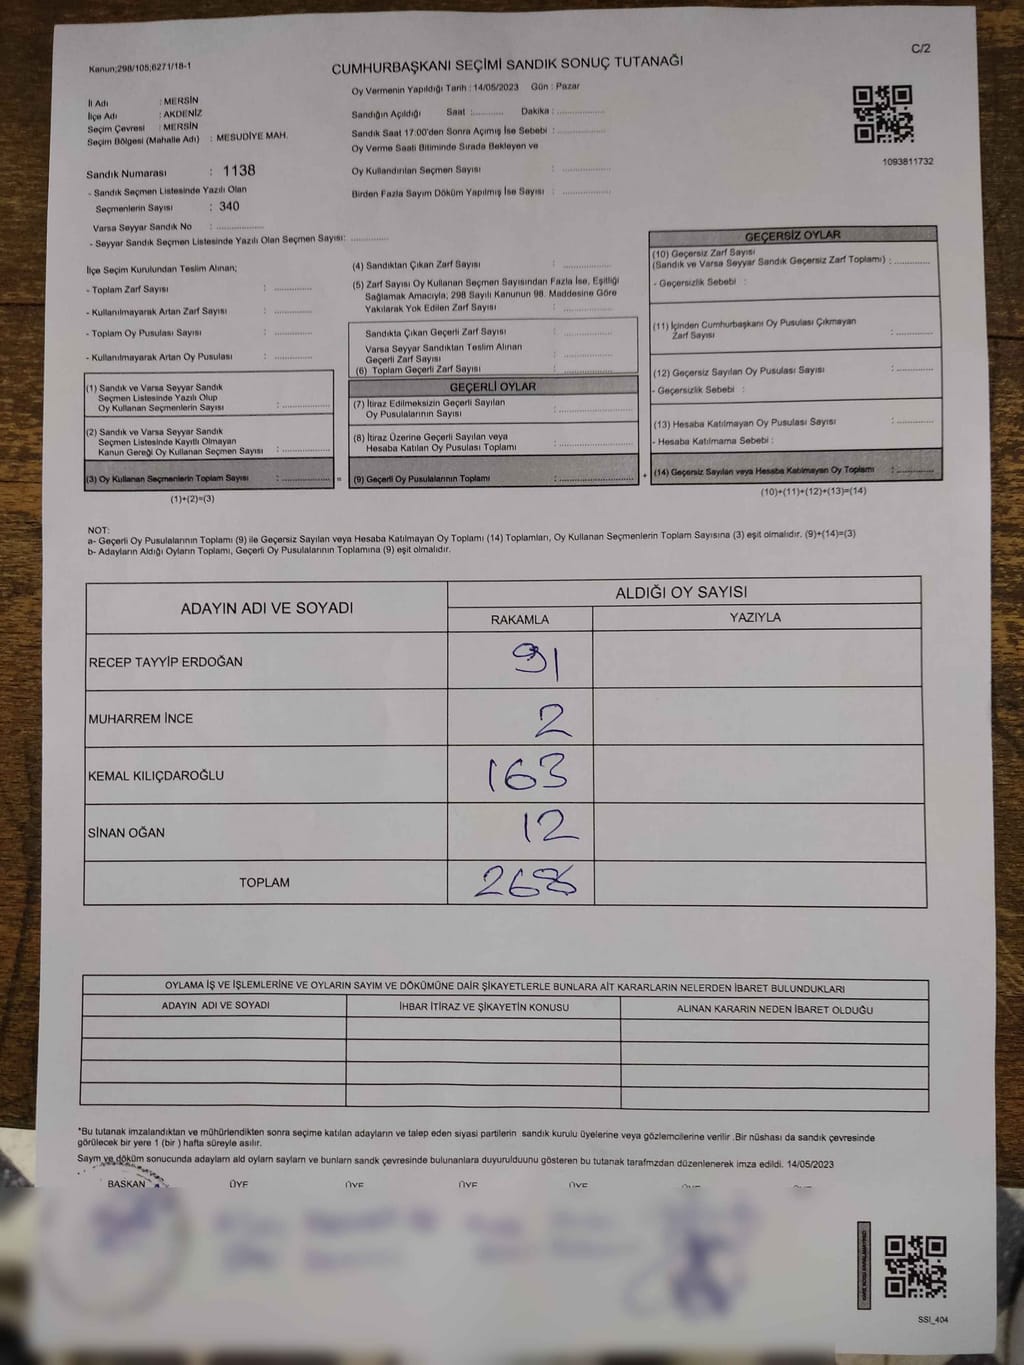 C/2
Kanun;298/105;6271/18-1
CUMHURBAŞKANI SEÇİMİ SANDIK SONUÇ TUTANAĞI
Oy Vermenin Yapıldığı Tarih : 14/05/2023 Gün : Pazar
İl Adı : MERSİN
İlçe Adı : AKDENİZ
Seçim Çevresi : MERSİN
Seçim Bölgesi (Mahalle Adı) : MESUDİYE MAH.
Sandığın Açıldığı Saat :........... Dakika : ................
Sandık Saat 17:00'den Sonra Açımış İse Sebebi : ................
Oy Verme Saati Bitiminde Sırada Bekleyen ve
Oy Kullandırılan Seçmen Sayısı : ................
Birden Fazla Sayım Döküm Yapılmış İse Sayısı : ................
1093811732
Sandık Numarası : 1138
- Sandık Seçmen Listesinde Yazılı Olan
Seçmenlerin Sayısı : 340
Varsa Seyyar Sandık No : ................
- Seyyar Sandık Seçmen Listesinde Yazılı Olan Seçmen Sayısı: ............
İlçe Seçim Kurulundan Teslim Alınan;
- Toplam Zarf Sayısı : ............
- Kullanılmayarak Artan Zarf Sayısı : ............
- Toplam Oy Pusulası Sayısı : ............
- Kullanılmayarak Artan Oy Pusulası : ............
(1) Sandık ve Varsa Seyyar Sandık
Seçmen Listesinde Yazılı Olup
Oy Kullanan Seçmenlerin Sayısı : ................
(2) Sandık ve Varsa Seyyar Sandık
Seçmen Listesinde Kayıtlı Olmayan
Kanun Gereği Oy Kullanan Seçmen Sayısı : ................
(3) Oy Kullanan Seçmenlerin Toplam Sayısı : ................ =
(1)+(2)=(3)
(4) Sandıktan Çıkan Zarf Sayısı : ................
(5) Zarf Sayısı Oy Kullanan Seçmen Sayısından Fazla İse, Eşitliği
Sağlamak Amacıyla; 298 Sayılı Kanunun 98. Maddesine Göre
Yakılarak Yok Edilen Zarf Sayısı : ................
Sandıkta Çıkan Geçerli Zarf Sayısı : ................
Varsa Seyyar Sandıktan Teslim Alınan
Geçerli Zarf Sayısı : ................
(6) Toplam Geçerli Zarf Sayısı : ................
GEÇERLİ OYLAR
(7) İtiraz Edilmeksizin Geçerli Sayılan
Oy Pusulalarının Sayısı : ................
(8) İtiraz Üzerine Geçerli Sayılan veya
Hesaba Katılan Oy Pusulası Toplamı : ................
(9) Geçerli Oy Pusulalarının Toplamı : ................ +
GEÇERSİZ OYLAR
(10) Geçersiz Zarf Sayısı
(Sandık ve Varsa Seyyar Sandık Geçersiz Zarf Toplamı) : ............
- Geçersizlik Sebebi :
(11) İçinden Cumhurbaşkanı Oy Pusulası Çıkmayan
Zarf Sayısı : ............
(12) Geçersiz Sayılan Oy Pusulası Sayısı : ............
- Geçersizlik Sebebi :
(13) Hesaba Katılmayan Oy Pusulası Sayısı : ............
- Hesaba Katılmama Sebebi :
(14) Geçersiz Sayılan veya Hesaba Katılmayan Oy Toplamı : ............
(10)+(11)+(12)+(13)=(14)
NOT:
a- Geçerli Oy Pusulalarının Toplamı (9) ile Geçersiz Sayılan veya Hesaba Katılmayan Oy Toplamı (14) Toplamları, Oy Kullanan Seçmenlerin Toplam Sayısına (3) eşit olmalıdır. (9)+(14)=(3)
b- Adayların Aldığı Oyların Toplamı, Geçerli Oy Pusulalarının Toplamına (9) eşit olmalıdır.
ADAYIN ADI VE SOYADI
ALDIĞI OY SAYISI
RAKAMLA YAZIYLA
RECEP TAYYİP ERDOĞAN 91
MUHARREM İNCE 2
KEMAL KILIÇDAROĞLU 163
SİNAN OĞAN 12
TOPLAM 268
OYLAMA İŞ VE İŞLEMLERİNE VE OYLARIN SAYIM VE DÖKÜMÜNE DAİR ŞİKAYETLERLE BUNLARA AİT KARARLARIN NELERDEN İBARET BULUNDUKLARI
ADAYIN ADI VE SOYADI İHBAR İTİRAZ VE ŞİKAYETİN KONUSU ALINAN KARARIN NEDEN İBARET OLDUĞU
*Bu tutanak imzalandıktan ve mühürlendikten sonra seçime katılan adayların ve talep eden siyasi partilerin sandık kurulu üyelerine veya gözlemcilerine verilir .Bir nüshası da sandık çevresinde
görülecek bir yere 1 (bir ) hafta süreyle asılır.
Saym ve döküm sonucunda adaylarn ald oylarn saylarn ve bunlarn sandk çevresinde bulunanlara duyurulduunu gösteren bu tutanak tarafmzdan düzenlenerek imza edildi. 14/05/2023
BAŞKAN ÜYE ÜYE ÜYE ÜYE
SSI_404